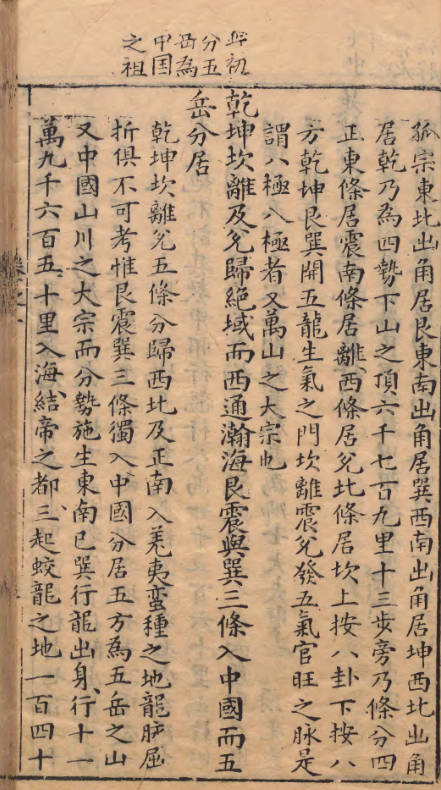 幹初
分五
岳為
中国
之祖
孤宗東北出角居艮東南出角居巽西南出角居坤西北出角
居乾乃為四勢下山之頂六千七百九里十三步旁乃條分四
正東條居震南條居離西條居兌北條居坎上按八卦下按八
方乾坤艮巽開五龍生氣之門坎離震兌發五氣官旺之脉是
謂八極八極者又萬山之大宗也
乾坤坎離及兌歸絕域而西通瀚海艮震與巽三條入中國而五
岳分居
乾坤坎離兌五條分歸西北及正南入羌夷蛮種之地龍脉屈
折俱不可考惟艮震巽三條獨入中國分居五方為五岳之山
又中國山川之大宗而分勢施生東南巳巽行龍出身行十一
萬九千六百五十里入海結帝之都三起蛟龍之地一百四十